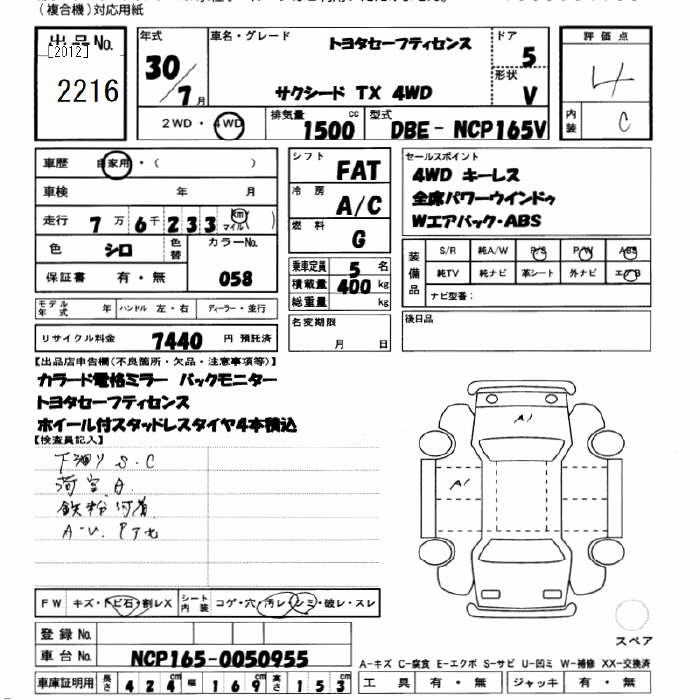 (複合機)対応用紙
出品No.
[2012]
2216
年式 30 / 7 月
車名・グレード トヨタセーフティセンス
サクシード TX 4WD
ドア 5
形状 V
2WD・4WD
排気量 1500 cc
型式 DBE-NCP165V
評価点
4
内装 C
車歴 自家用・( )
車検 年 月
走行 7万6千233 km マイル( )
色 シロ 色替 カラーNo. 058
保証書 有・無
モデル年式 年 ハンドル 左・右 ディーラー・並行
リサイクル料金 7440 円 預託済
シフト FAT
冷房 A/C
燃料 G
乗車定員 5 名
積載量 400 kg
総重量 kg
名変期限
月 日
セールスポイント
4WD キーレス
全席パワーウインドゥ
Wエアバック・ABS
装備品
S/R 純A/W P/S P/W ABS
純TV 純ナビ 革シート 外ナビ エアB
ナビ型番:
後日品
【出品店申告欄(不良箇所・欠品・注意事項等)】
カラード電格ミラー バックモニター
トヨタセーフティセンス
ホイール付スタッドレスタイヤ4本積込
【検査員記入】
下廻り S.C
荷室 A
鉄粉付着
A-U
A1
A1
FW キズ・トビ石・割レX シート内装 コゲ・穴・汚レ・シミ・破レ・スレ
登録No.
車台No. NCP165-0050955
車庫証明用 長さ 424 cm 幅 169 cm 高さ 153 cm
スペア
A-キズ C-腐食 E-エクボ S-サビ U-凹ミ W-補修 XX-交換済
工具 有・無 ジャッキ 有・無